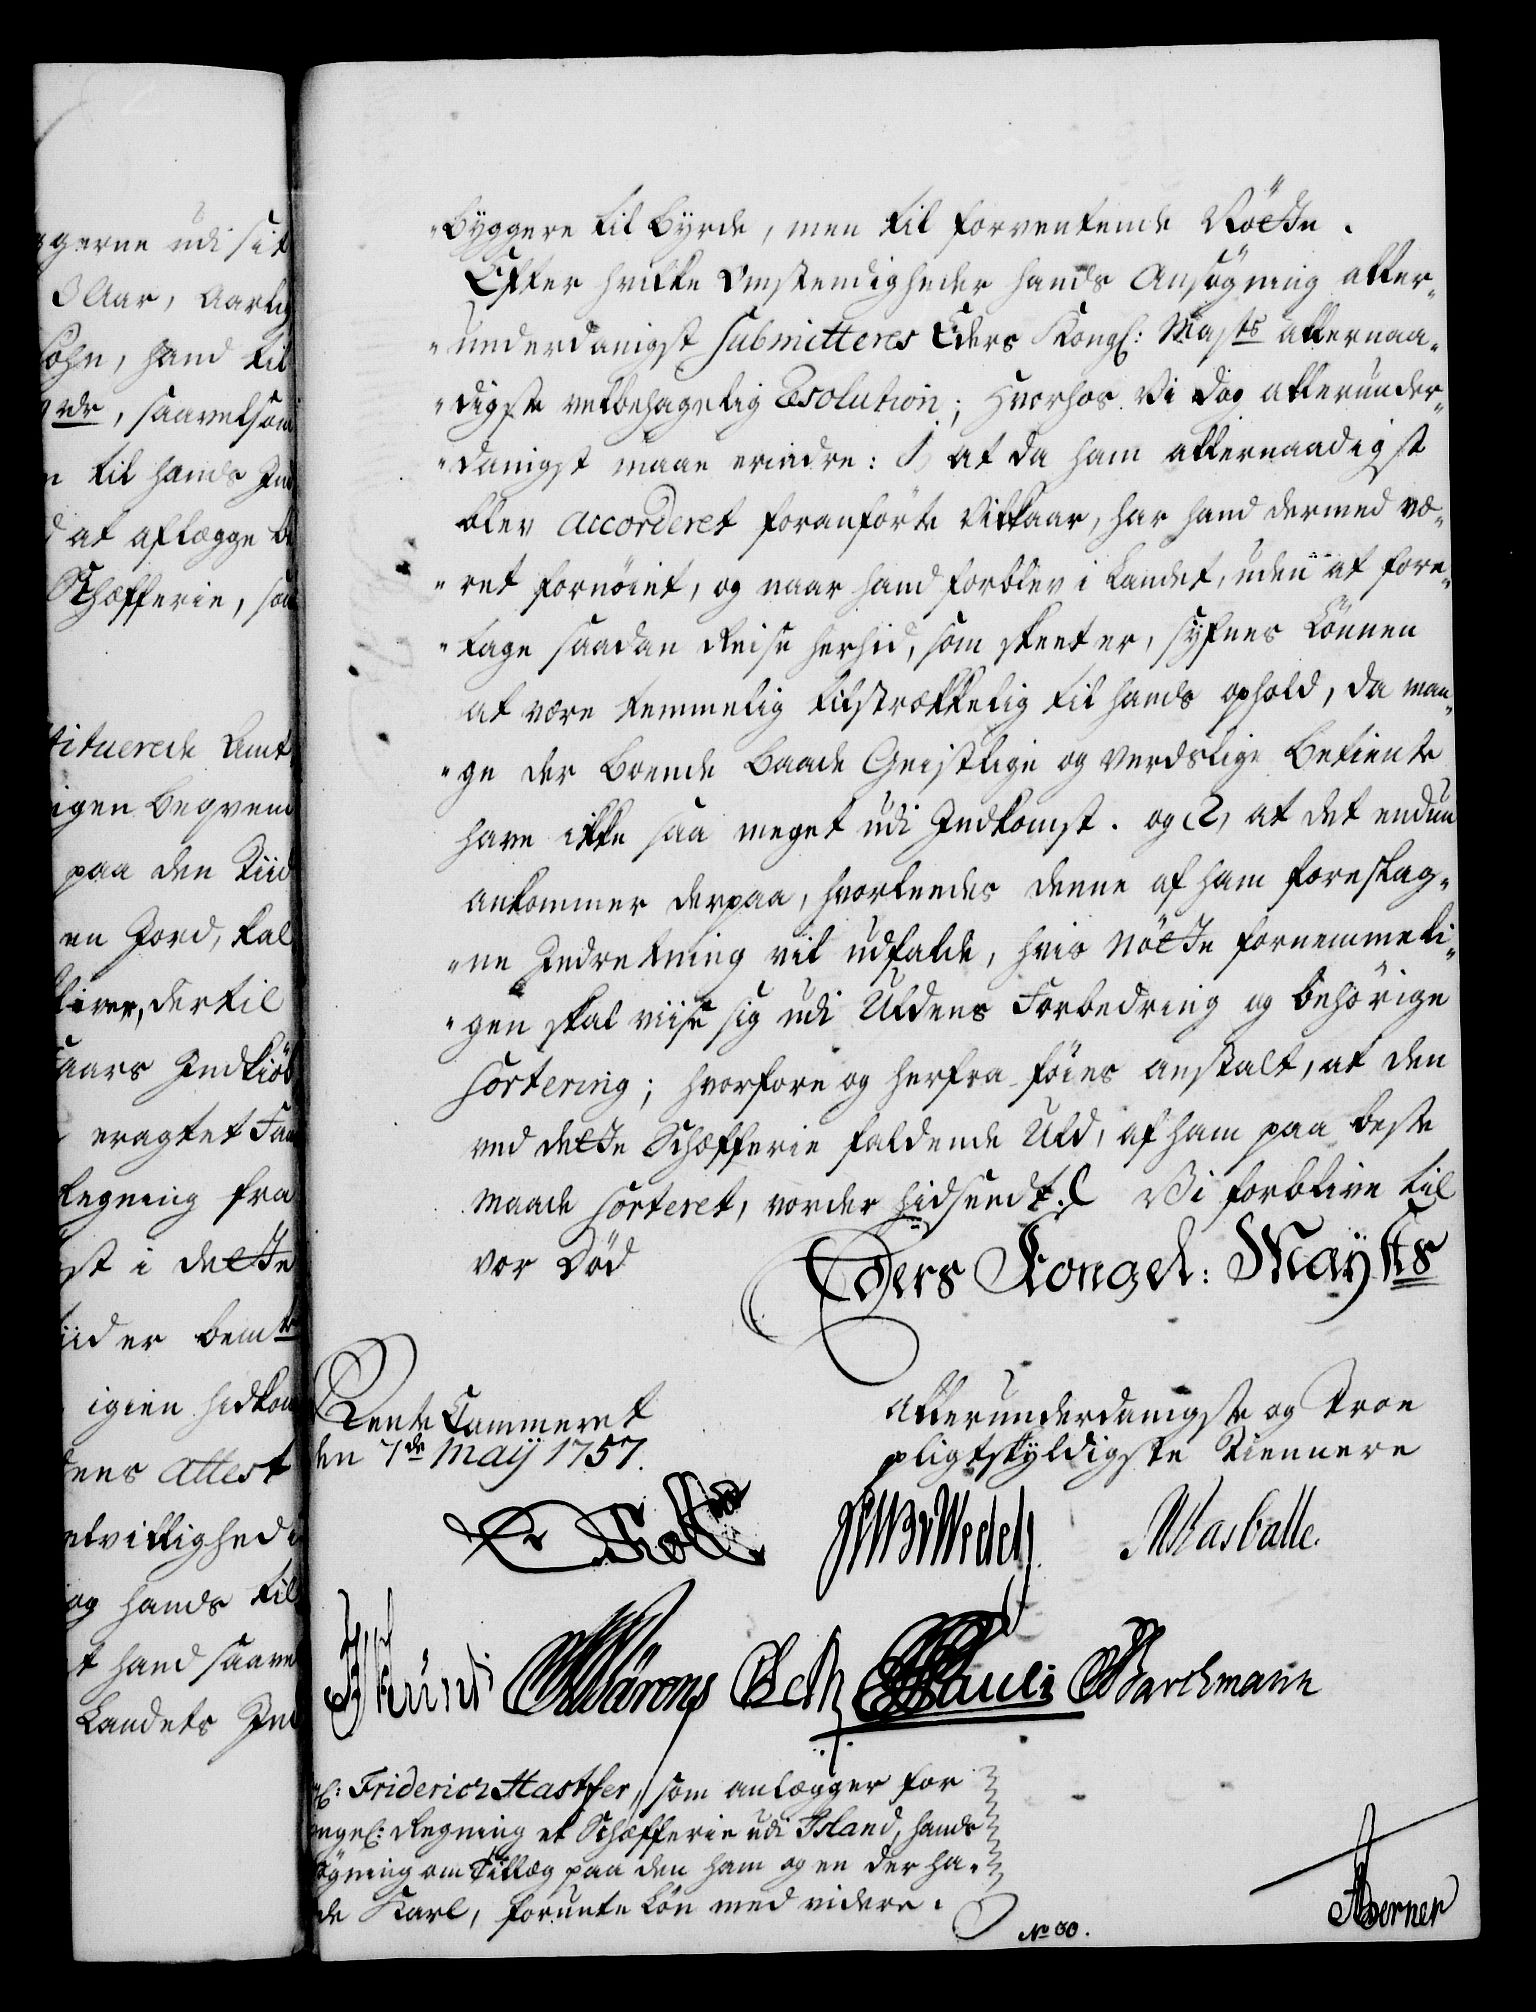 ggerne udi sit
3 Aar, Aarlig
Sohn, hand til
rdr, saavelsom
til hands Ind
at aflægge
Schæfferie, saa
tituerede Amt
igen beqvem
paa den Tiid
en Jord, kal
bliver, dertil
Faars Indkiöb
eragtet Faa
Regning fra
st i dette
tiider bemte
igien hidkom
dens Attest
velvillighed
og hands til
t hand saavel
Landets Ind
byggere til byrde, men til forventende Nötte.
Efter hvilke Omstendigheder hands Ansögning aller-
underdanigst submitteres Eders Kongl: Maysts allernaa-
digste velbehagelig Resolution; hvorhos Vi dog allerunder-
danigst maae erindre: 1, at da ham allernaadigst
blev accorderet foranförte Vilkaar, har hand dermed væ-
ret fornöiet, og naar hand forblev i Landet, uden at fore-
tage saadan Reise herhid, som skeet er, syfnes Lönnen
at være temmelig tilstrækkelig til hands ophold, da man-
ge der boende baade Geistlige og Verdslige betiente
have ikke saa meget udi Indkomst. og 2, at det endnu
ankommer derpaa, hvorledes denne af ham foreslag-
ne Indretning vil udfalde, hvis Nötte fornemmeli-
gen skal viise sig udi Uldens Forbedring og behörige
Sortering; hvorfore og herfra föies anstalt, at den
ved dette Schæfferie faldende Uld, af ham paa beste
maade sorteret, vorder hidsendt. Vi forblive til
vor Död
Eders Kongel: Maysts
Rente Cammeret
den 7de Maij 1757.
Allerunderdanigste og Troe
pligtskyldigste Tiennere
Wedel
Wasballe.
Wärens Pauli Barchmann
Friderich Hastfer, som anlægger for
ongel: Regning et Schæfferie udi Island, hands
ögning om Tillæg paa den ham og en der ha-
de Karl, forunte Lön med videre.
No 30.
Berner